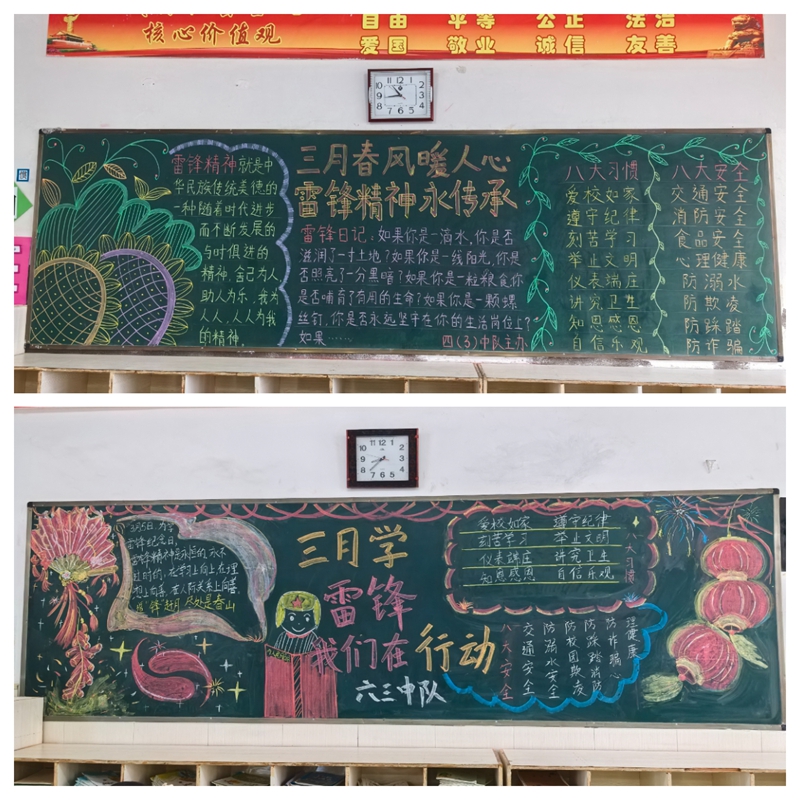 核心价值观
自由 平等 公正 法治
爱国 敬业 诚信 友善
雷锋精神就是中
华民族传统美德的
一种随着时代进步
而不断发展的
与时俱进的
精神,舍己为人
助人为乐,我为
人人,人人为我
的精神。
三月春风暖人心
雷锋精神永传承
雷锋日记:如果你是一滴水,你是否
滋润了一寸土地?如果你是一线阳光,你是
否照亮了一分黑暗?如果你是一粒粮食,你
是否哺育了有用的生命?如果你是一颗螺
丝钉,你是否永远坚守在你的生活岗位上?
如果……
四(3)中队主办
八大习惯
爱校如家
遵守纪律
刻苦学习
举止文明
仪表端庄
讲究卫生
知恩感恩
自信乐观
八大安全
交通安全
消防安全
食品安全
心理健康
防溺水
防欺凌
防踩踏
防诈骗
3月5日,为学
雷锋纪念日,
雷锋精神是永恒的,永不
过时的,在学习上向上,在理
想上向善,在人际关系上向善,
春山
三月学
雷锋
我们在行动
六三中队
爱校如家 遵守纪律
刻苦学习 举止文明
仪表端庄 讲究卫生
知恩感恩 自信乐观
八大习惯
八大安全
交通安全
防溺水安全
防校园欺凌
防踩踏消防
防诈骗心
理健康